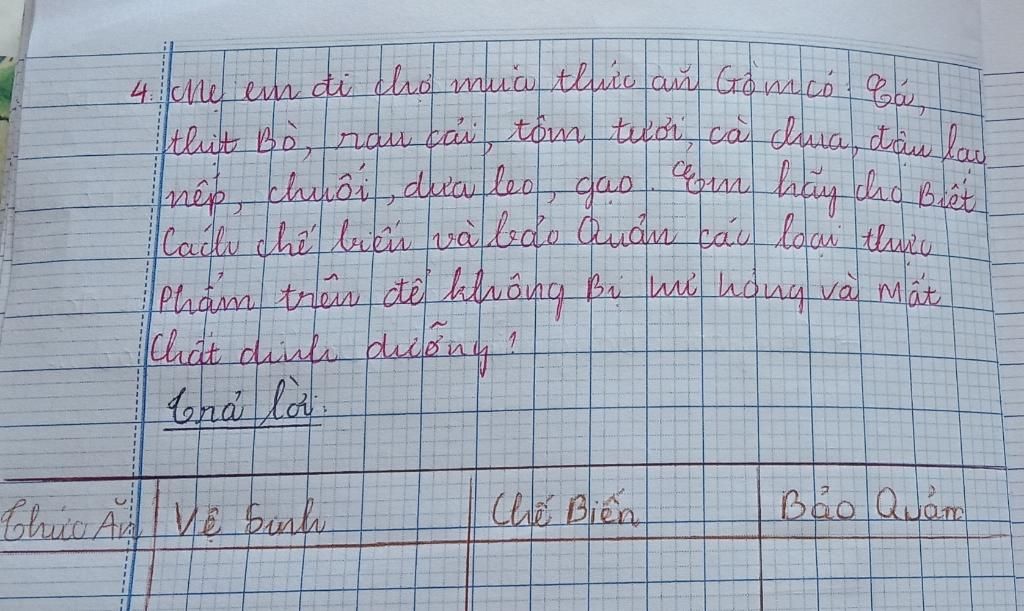 4. Mẹ em đi chợ mua thức ăn Gồm có Cá,
thịt Bò, rau cải, tôm tươi, cà chua, đậu lạc
nếp, chuối, dưa leo, gạo. Em hãy cho Biết
Cách chế biến và bảo Quản các loại thực
Phẩm trên để không Bị hư hỏng và Mất
Chất dinh dưỡng?
Trả lời:
Thức Ăn Vệ Sinh Chế Biến Bảo Quản